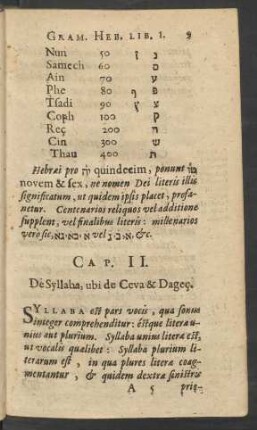 GRAM. HEB. LIB. I. 9
Nun 50 נ ן
Samech 60 ס
Ain 70 ע
Phe 80 פ ף
Tsadi 90 צ ץ
Coph 100 ק
Reç 200 ר
Cin 300 ש
Thau 400 ת
Hebræi pro יה quindecim, ponunt טו
novem & sex, ne nomen Dei literis illis
significatum, ut quidem ipsis placet, profa-
netur. Centenarios reliquos vel additione
supplent, vel finalibus literis: millenarios
vero sic, &c.
CAP. II.
De Syllaba, ubi de Ceva & Dageç.
SYLLABA est pars vocis, qua sonus
integer comprehenditur: éstque literæ u-
nius aut plurium. Syllaba unius literæ est,
ut vocalis quælibet: Syllaba plurium li-
terarum est, in qua plures literæ coag-
mentantur, & quidem dextræ sinistris
A 5 prio-